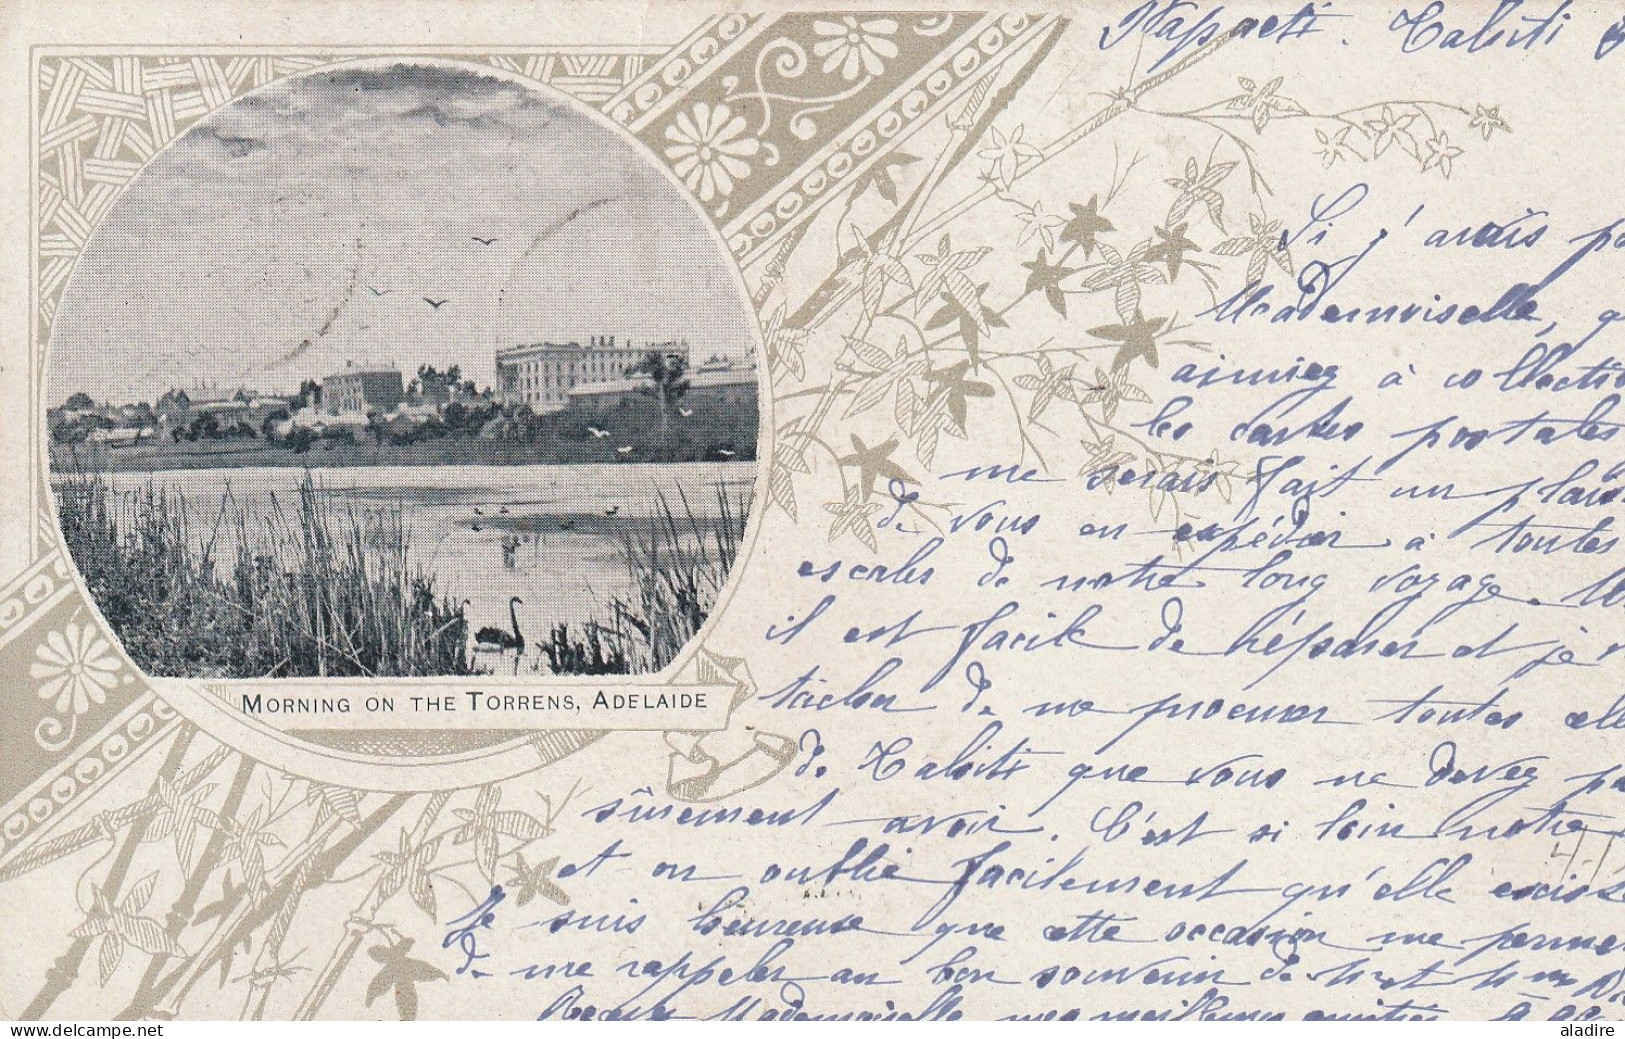 Papeete. Tahiti
Si j'avais
Mademoiselle,
aimiez à collection
les cartes postales
me serais fait un plaisi
de vous en expédier à toutes
escales de notre long voyage.
il est facile de réparer et je
tâcher de me procurer toutes
de Tahiti que vous ne devez pa
sûrement avoir. C'est si loin notre
et on oublie facilement qu'elle existe
Je suis heureuse que cette occasion me perme
de me rappeler au bon souvenir de
Mademoiselle, mes meilleures amitiés
MORNING ON THE TORRENS, ADELAIDE
aladire